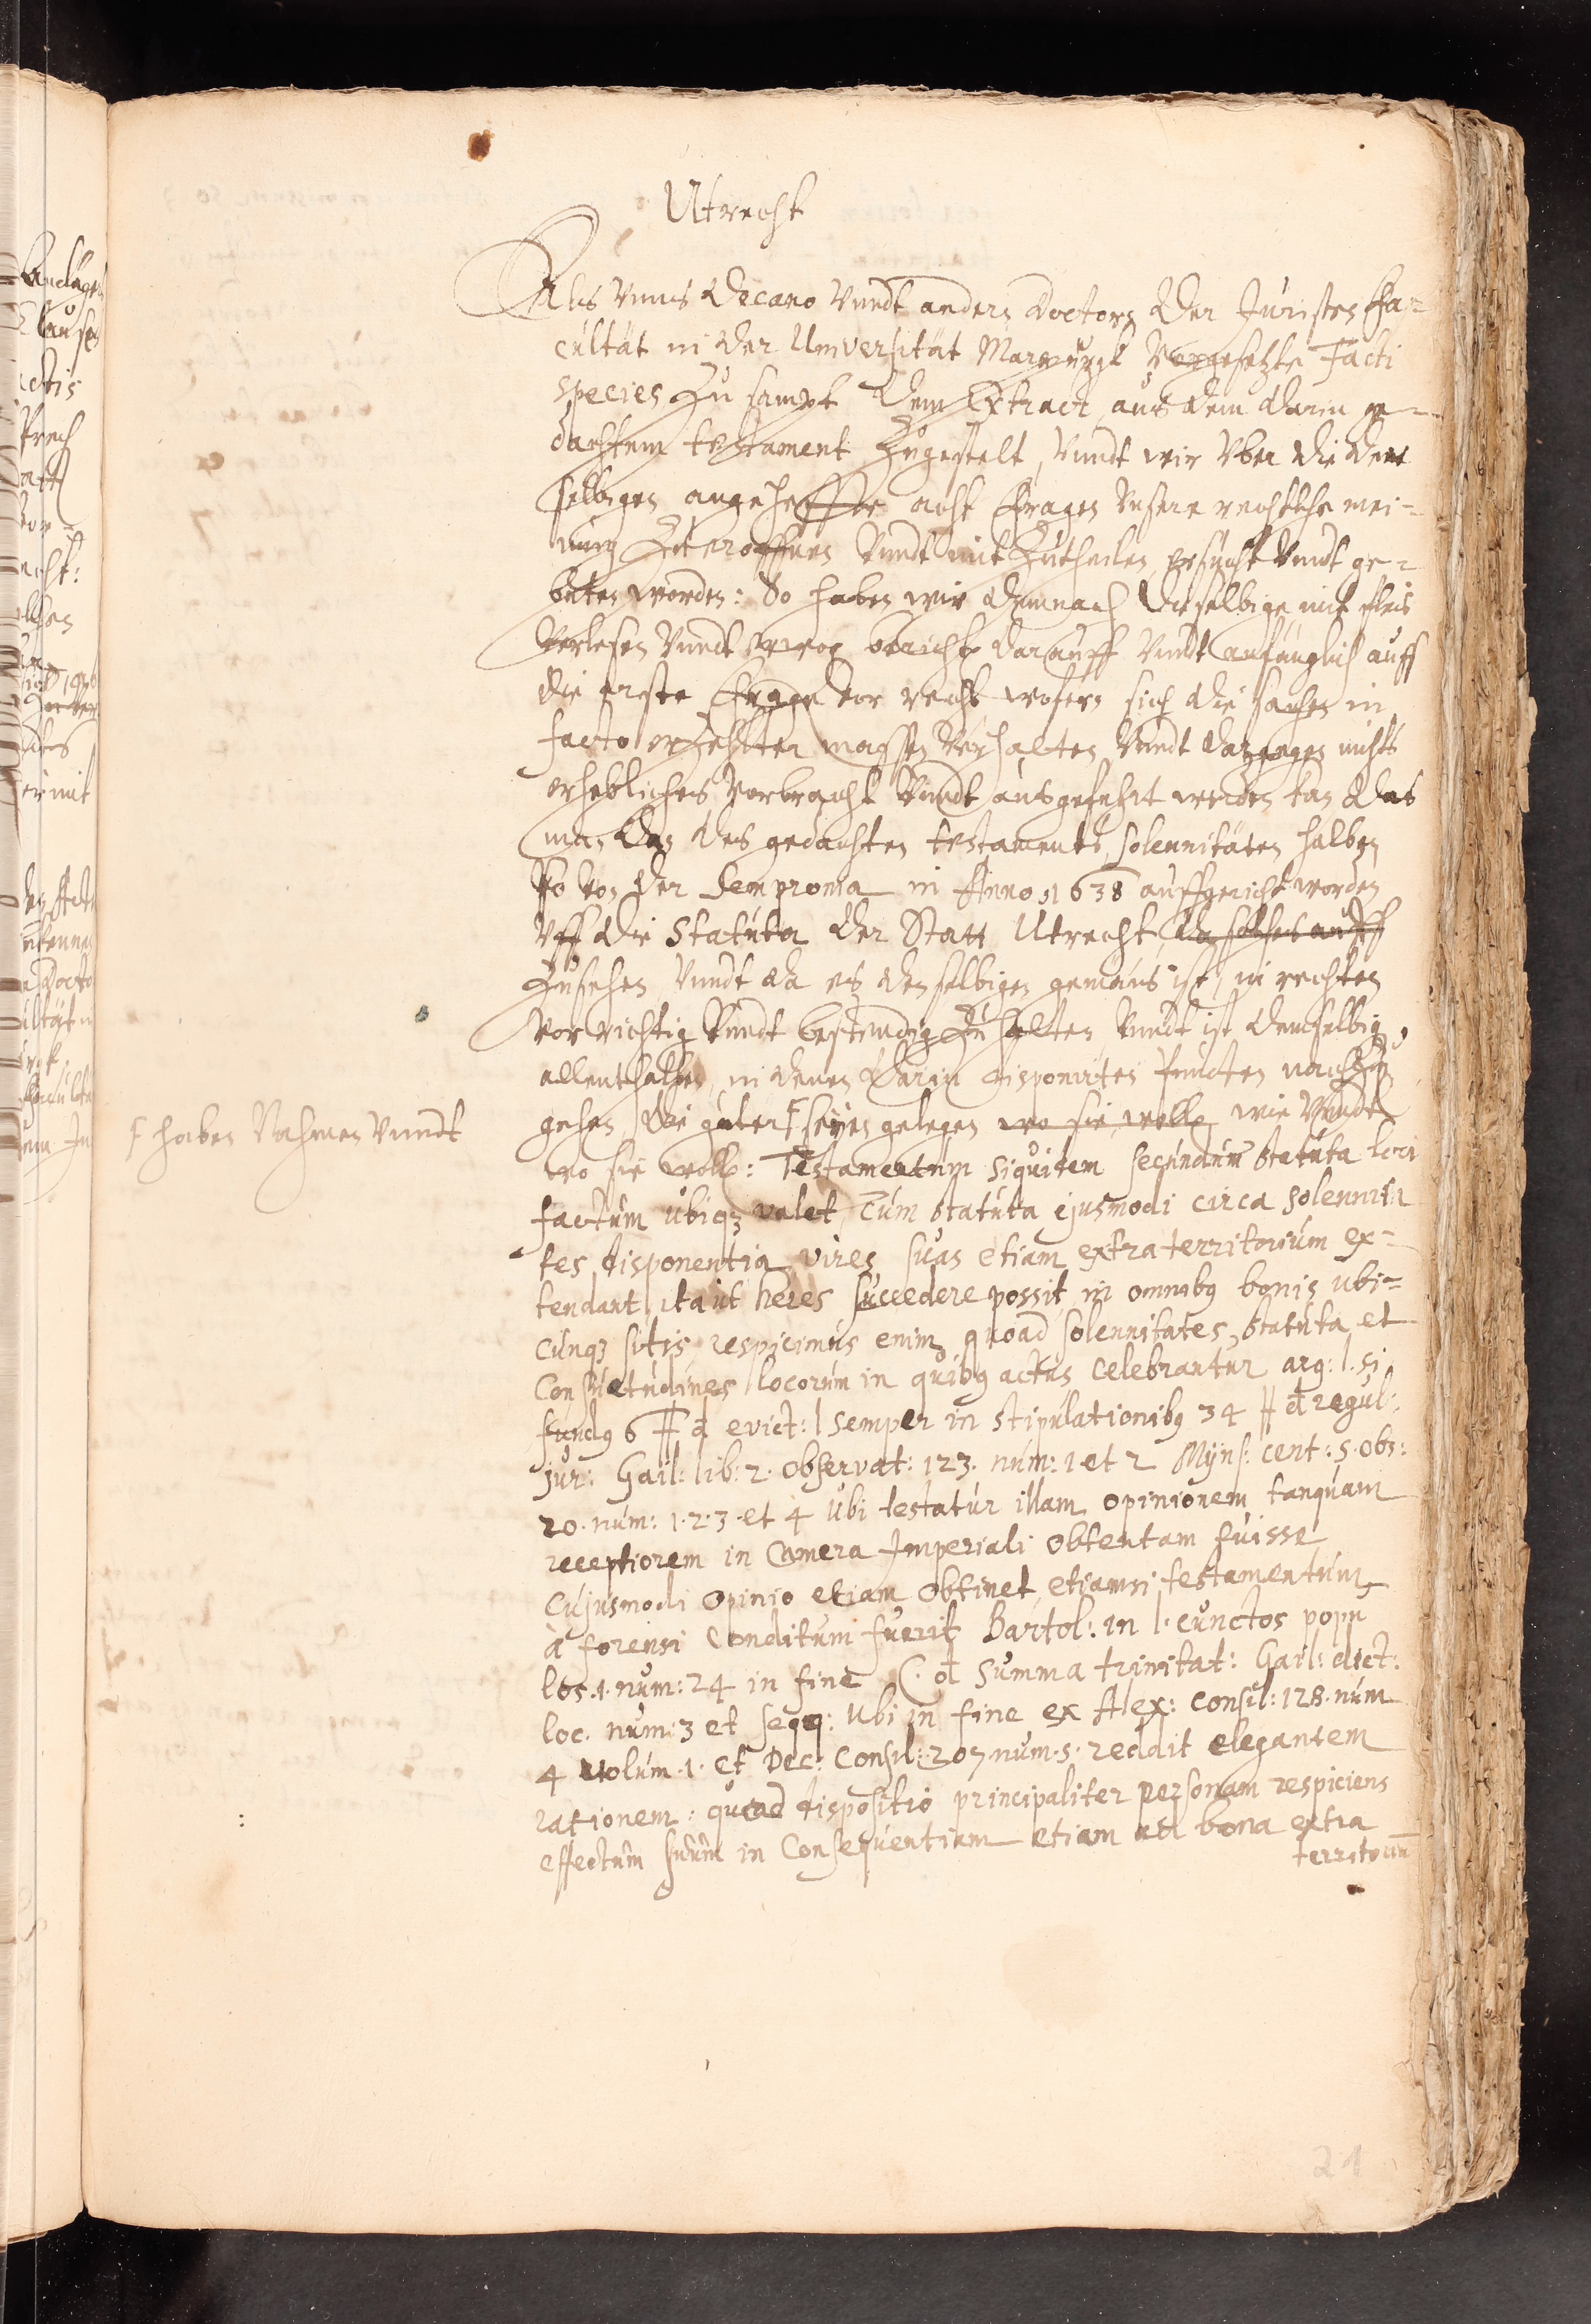 Utrecht
Als Vnns Decano Vundt andern Doctorn der Juristen Fa-
cultät in der Universität Marpurgk Vorgesetzte Facti
species Zu sampt dem Extract aus dem darin ge-
dachtem testament Zugestelt, Vundt wir Vber die der
selbigen angeheffte acht Fragen Vnsere rechtliche mei-
nung Zu eroffnen Vundt mit Zutheilen ersucht Vundt ge-
beten worden: So haben wir demnach dieselbige mit fleis
Verlesen Vundt erwogen berichten darauff Vundt anfänglich auff
die erste Frage vor recht wofern sich die sachen in
facto erzehlter massen Verhalten Vundt dargegen nichts
erhebliches Vorbracht Vundt ausgefuhrt werden kan das
man das des gedachten testaments solennitäten halben
so von der Sempronia in Anno 1638 auffgericht worden
Vff die Statuta der Statt Utrecht da solches auff
Zusehen Vundt da es denselbigen gemäus ist, in rechten
vor richtig Vundt bestendig Zu halten Vundt ist demselbigen
allenthalben in denen darin disponirten puncten nachzu
gehen, die güter seyen gelegen wo sie wollen wie Vundt
F haben Nahmen Vundt
wo sie wollen: Testamentum siquidem secundum statuta loci
factum ubiqz valet, Cum statuta ejusmodi circa solennita
tes disponentia vires suas etiam extra territorium ex-
tendant, ita ut heres succedere possit in omnibq bonis ubi-
cunqz sitis, respicimus enim quoad solennitates, statuta et
Consuetudines locorum in quibq actus celebrantur arg: l. si
fundq 6 ff d evict: l semper in stipulationibq 34 ff d regul:
jur: Gail: lib: 2. observat: 123. num: 1 et 2 Myns: cent: 5. obs:
20. num: 1. 2. 3. et 4 Ubi testatur illam opinionem tanquam
receptiorem in Camera Imperiali obtentam fuisse
Cujusmodi Opinio etiam obtinet, etiamsi testamentum
à forensi Conditum fuerit Bartol: in l. cunctos popu
los. 1. num: 24 in fine C. d summa trinitat: Gail: dict:
loc. num: 3 et seqq: Ubi in fine ex Alex: Consil: 128. num
4 volum. 1. et Dec: Consil: 207. num. 5. reddit elegantem
rationem: quod dispositio principaliter personam respiciens
effectum suum in Consequentiam etiam ad bona extra
territorium
24